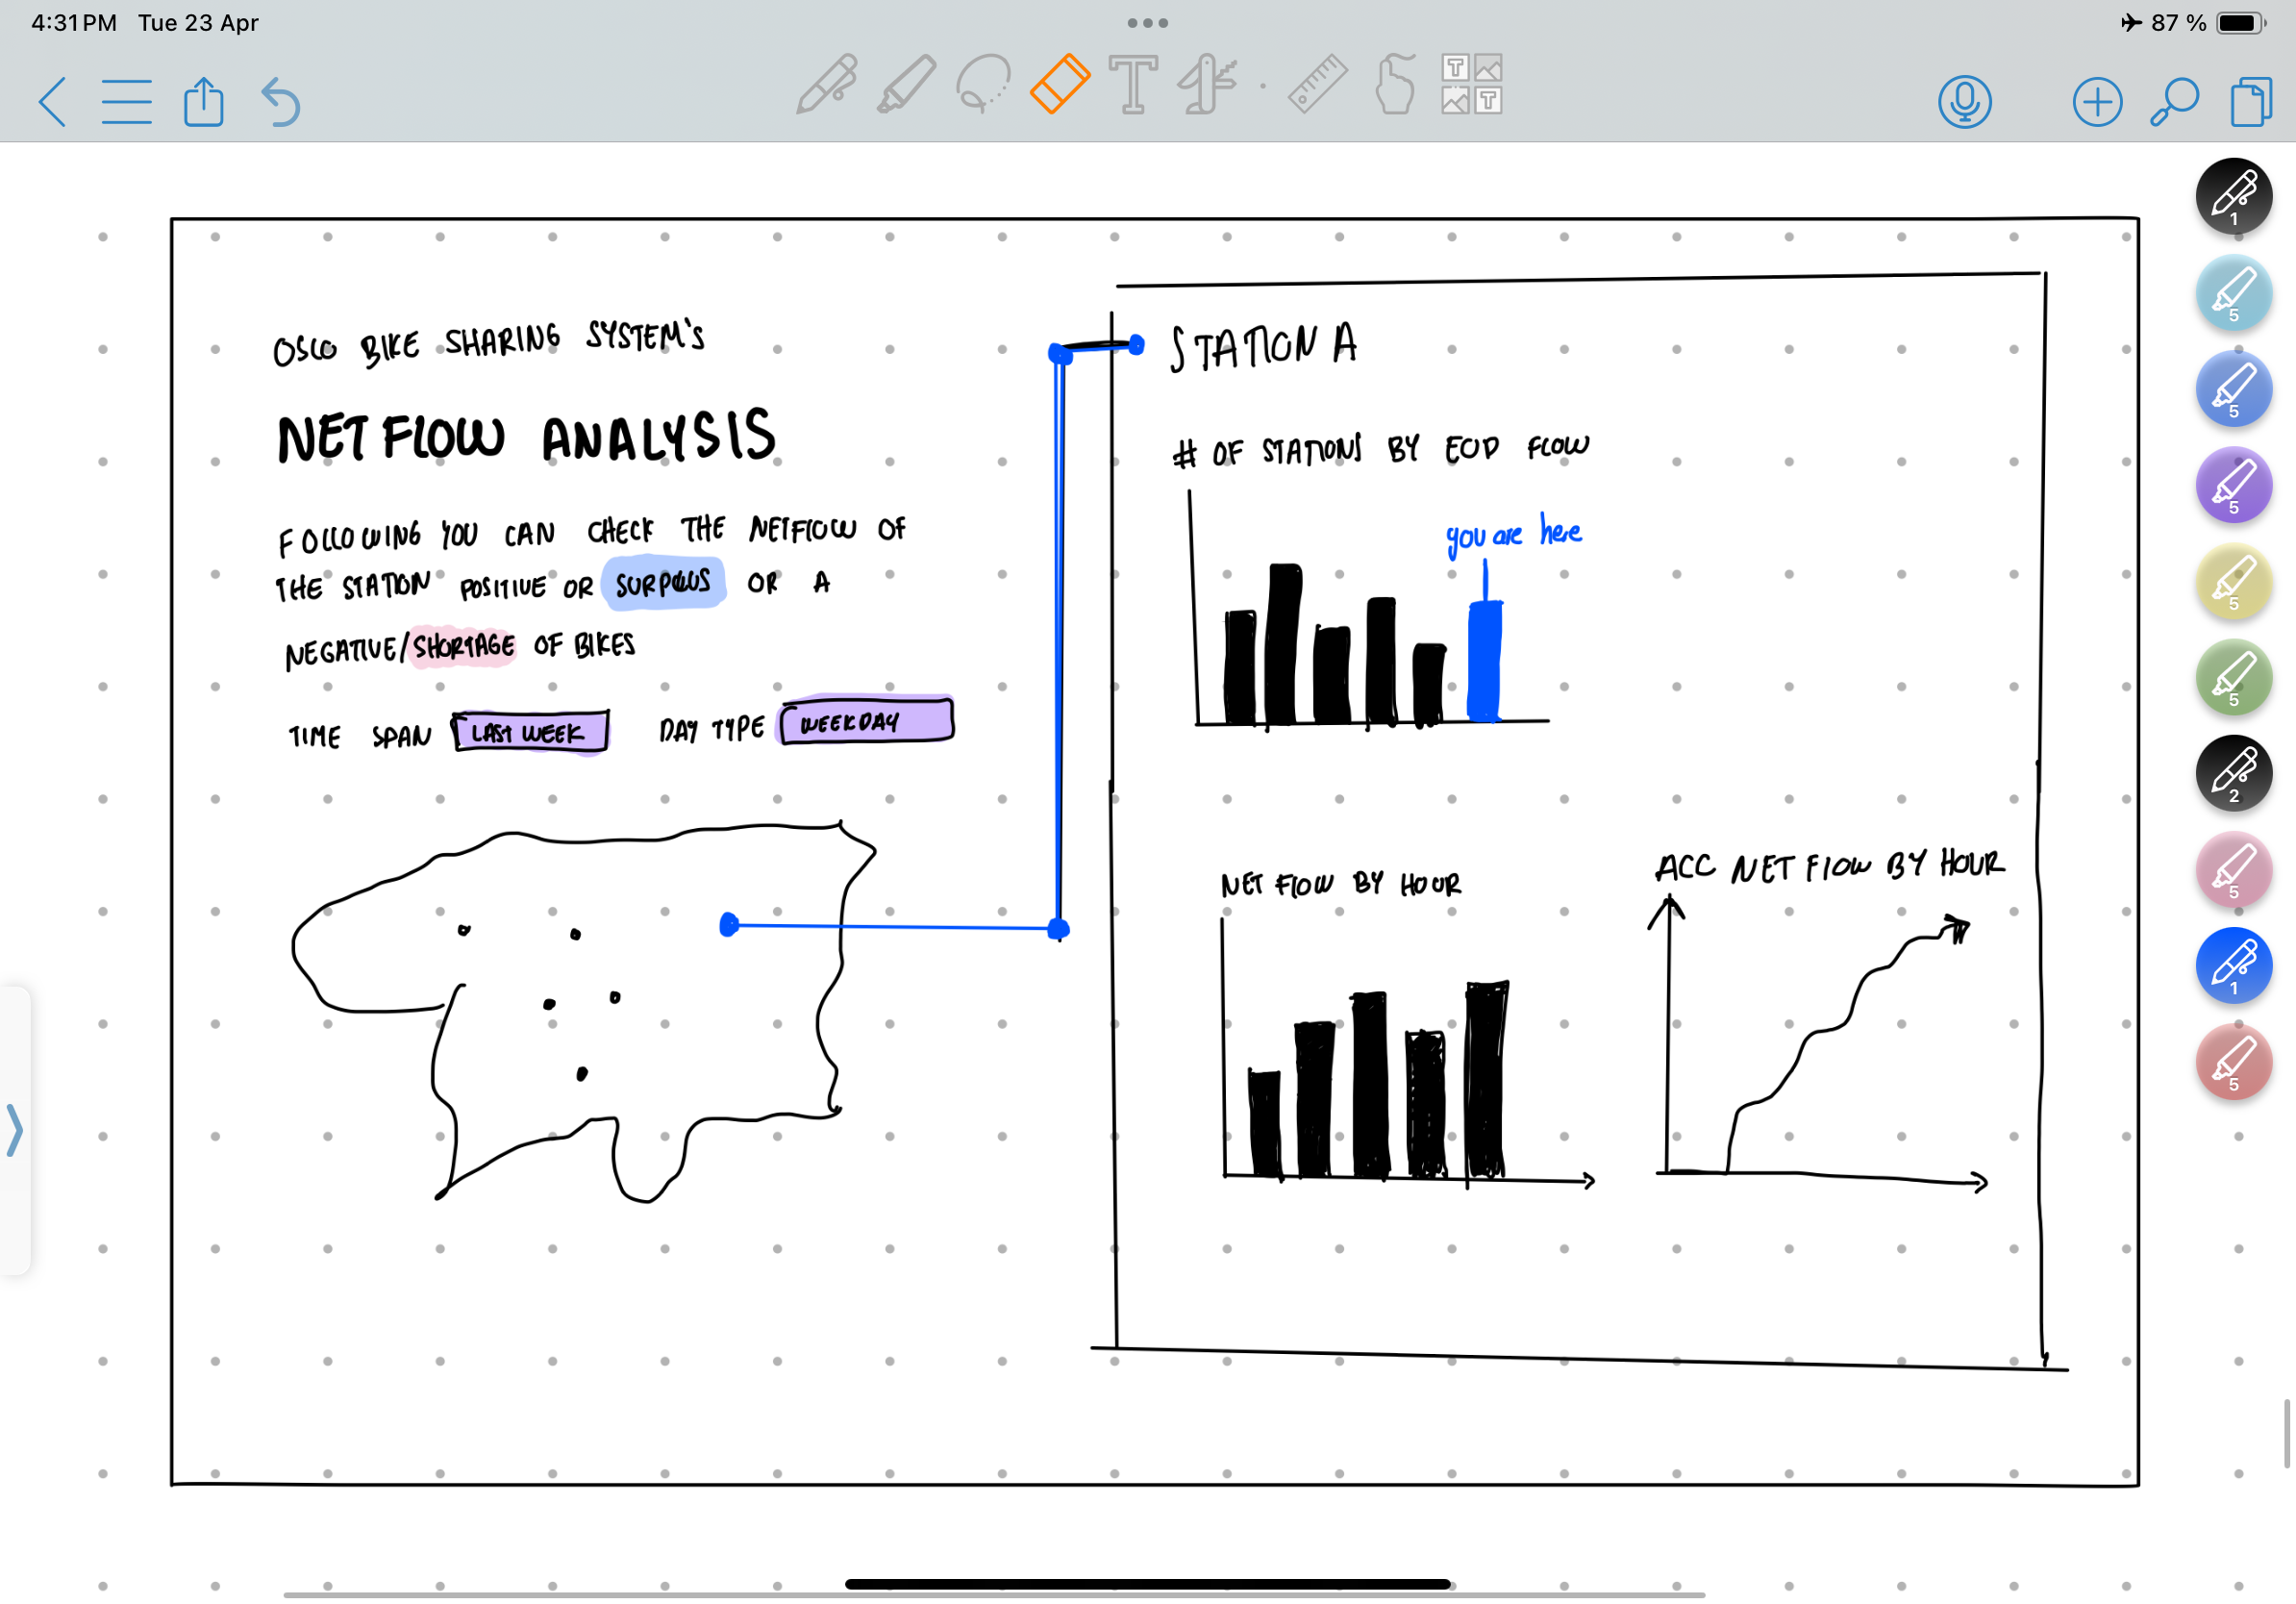 4:31 PM Tue 23 Apr
87 %
OSLO BIKE SHARING SYSTEM'S
NET FLOW ANALYSIS
FOLLOWING YOU CAN CHECK THE NETFLOW OF
THE STATION POSITIVE OR SURPLUS OR A
NEGATIVE/SHORTAGE OF BIKES
TIME SPAN LAST WEEK DAY TYPE WEEKDAY
STATION A
# OF STATIONS BY EOD FLOW
you are here
NET FLOW BY HOUR
ACC NET FLOW BY HOUR
T
T
T
1
5
5
5
5
5
2
5
1
5